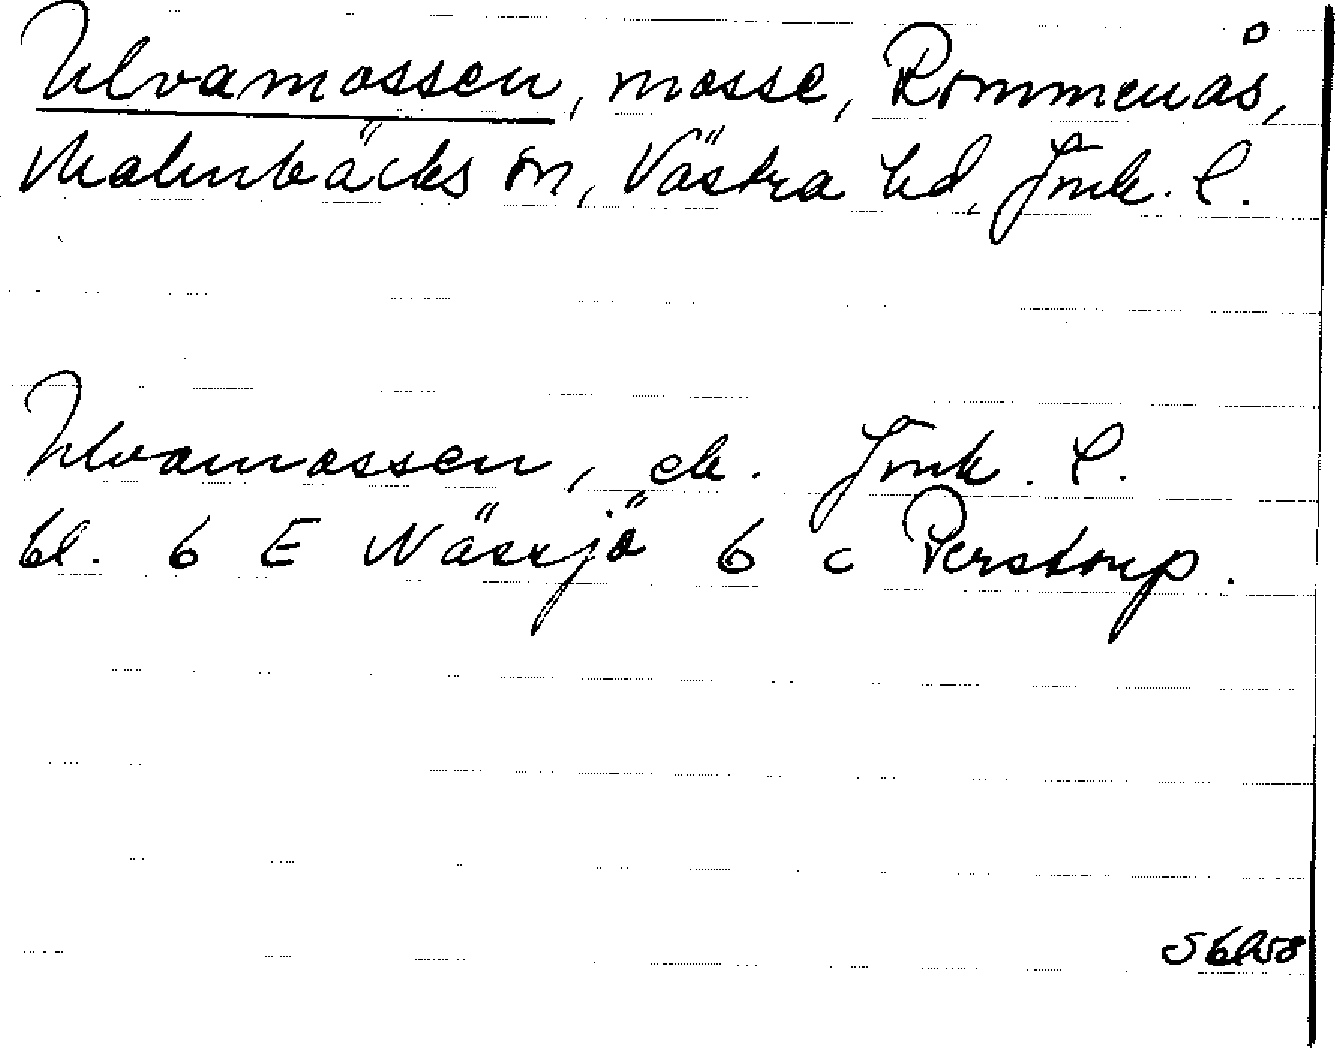 Ulvamossen, mosse, Rommenås,
Malmbäcks sn, Västra hd, Jönk. l.
Ulvamossen, ek. Jönk. l.
bl. 6 E Nässjö 6 c Perstorp.